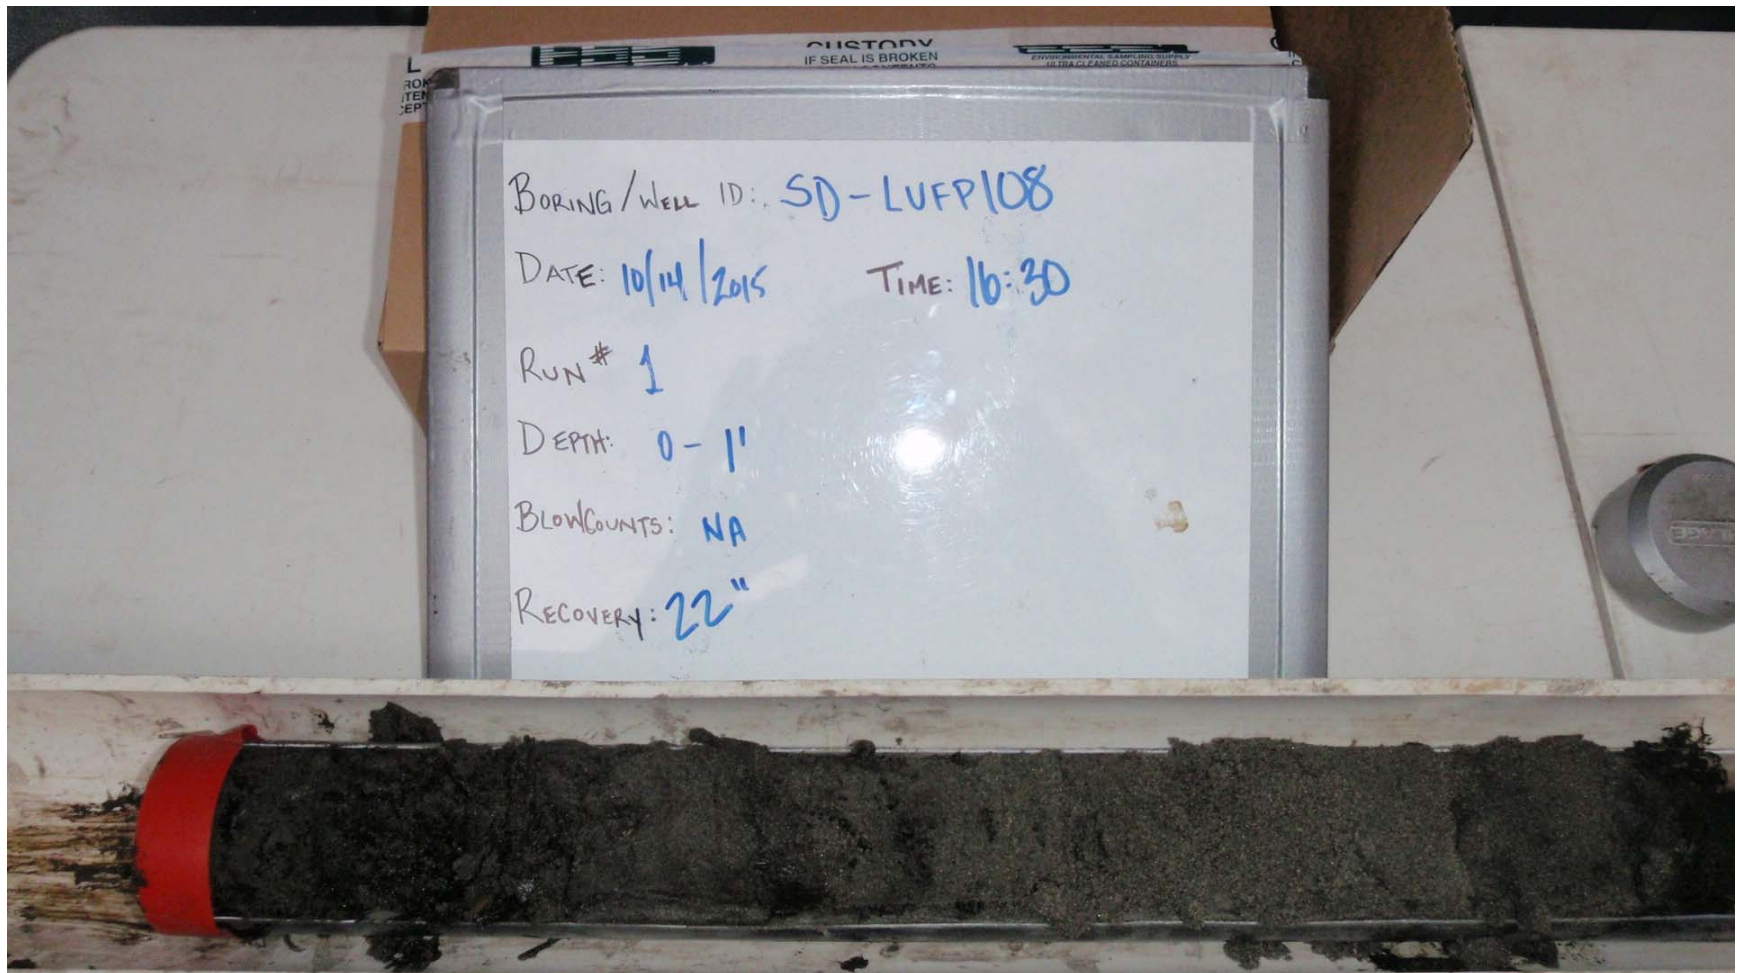 CUSTODY
IF SEAL IS BROKEN
ENVIRONMENTAL SAMPLING SUPPLY
ULTRA CLEANED CONTAINERS
BORING/WELL ID: SD-LUFP108
DATE: 10/14/2015 TIME: 16:30
RUN # 1
DEPTH: 0-1'
BLOWCOUNTS: NA
RECOVERY: 22"